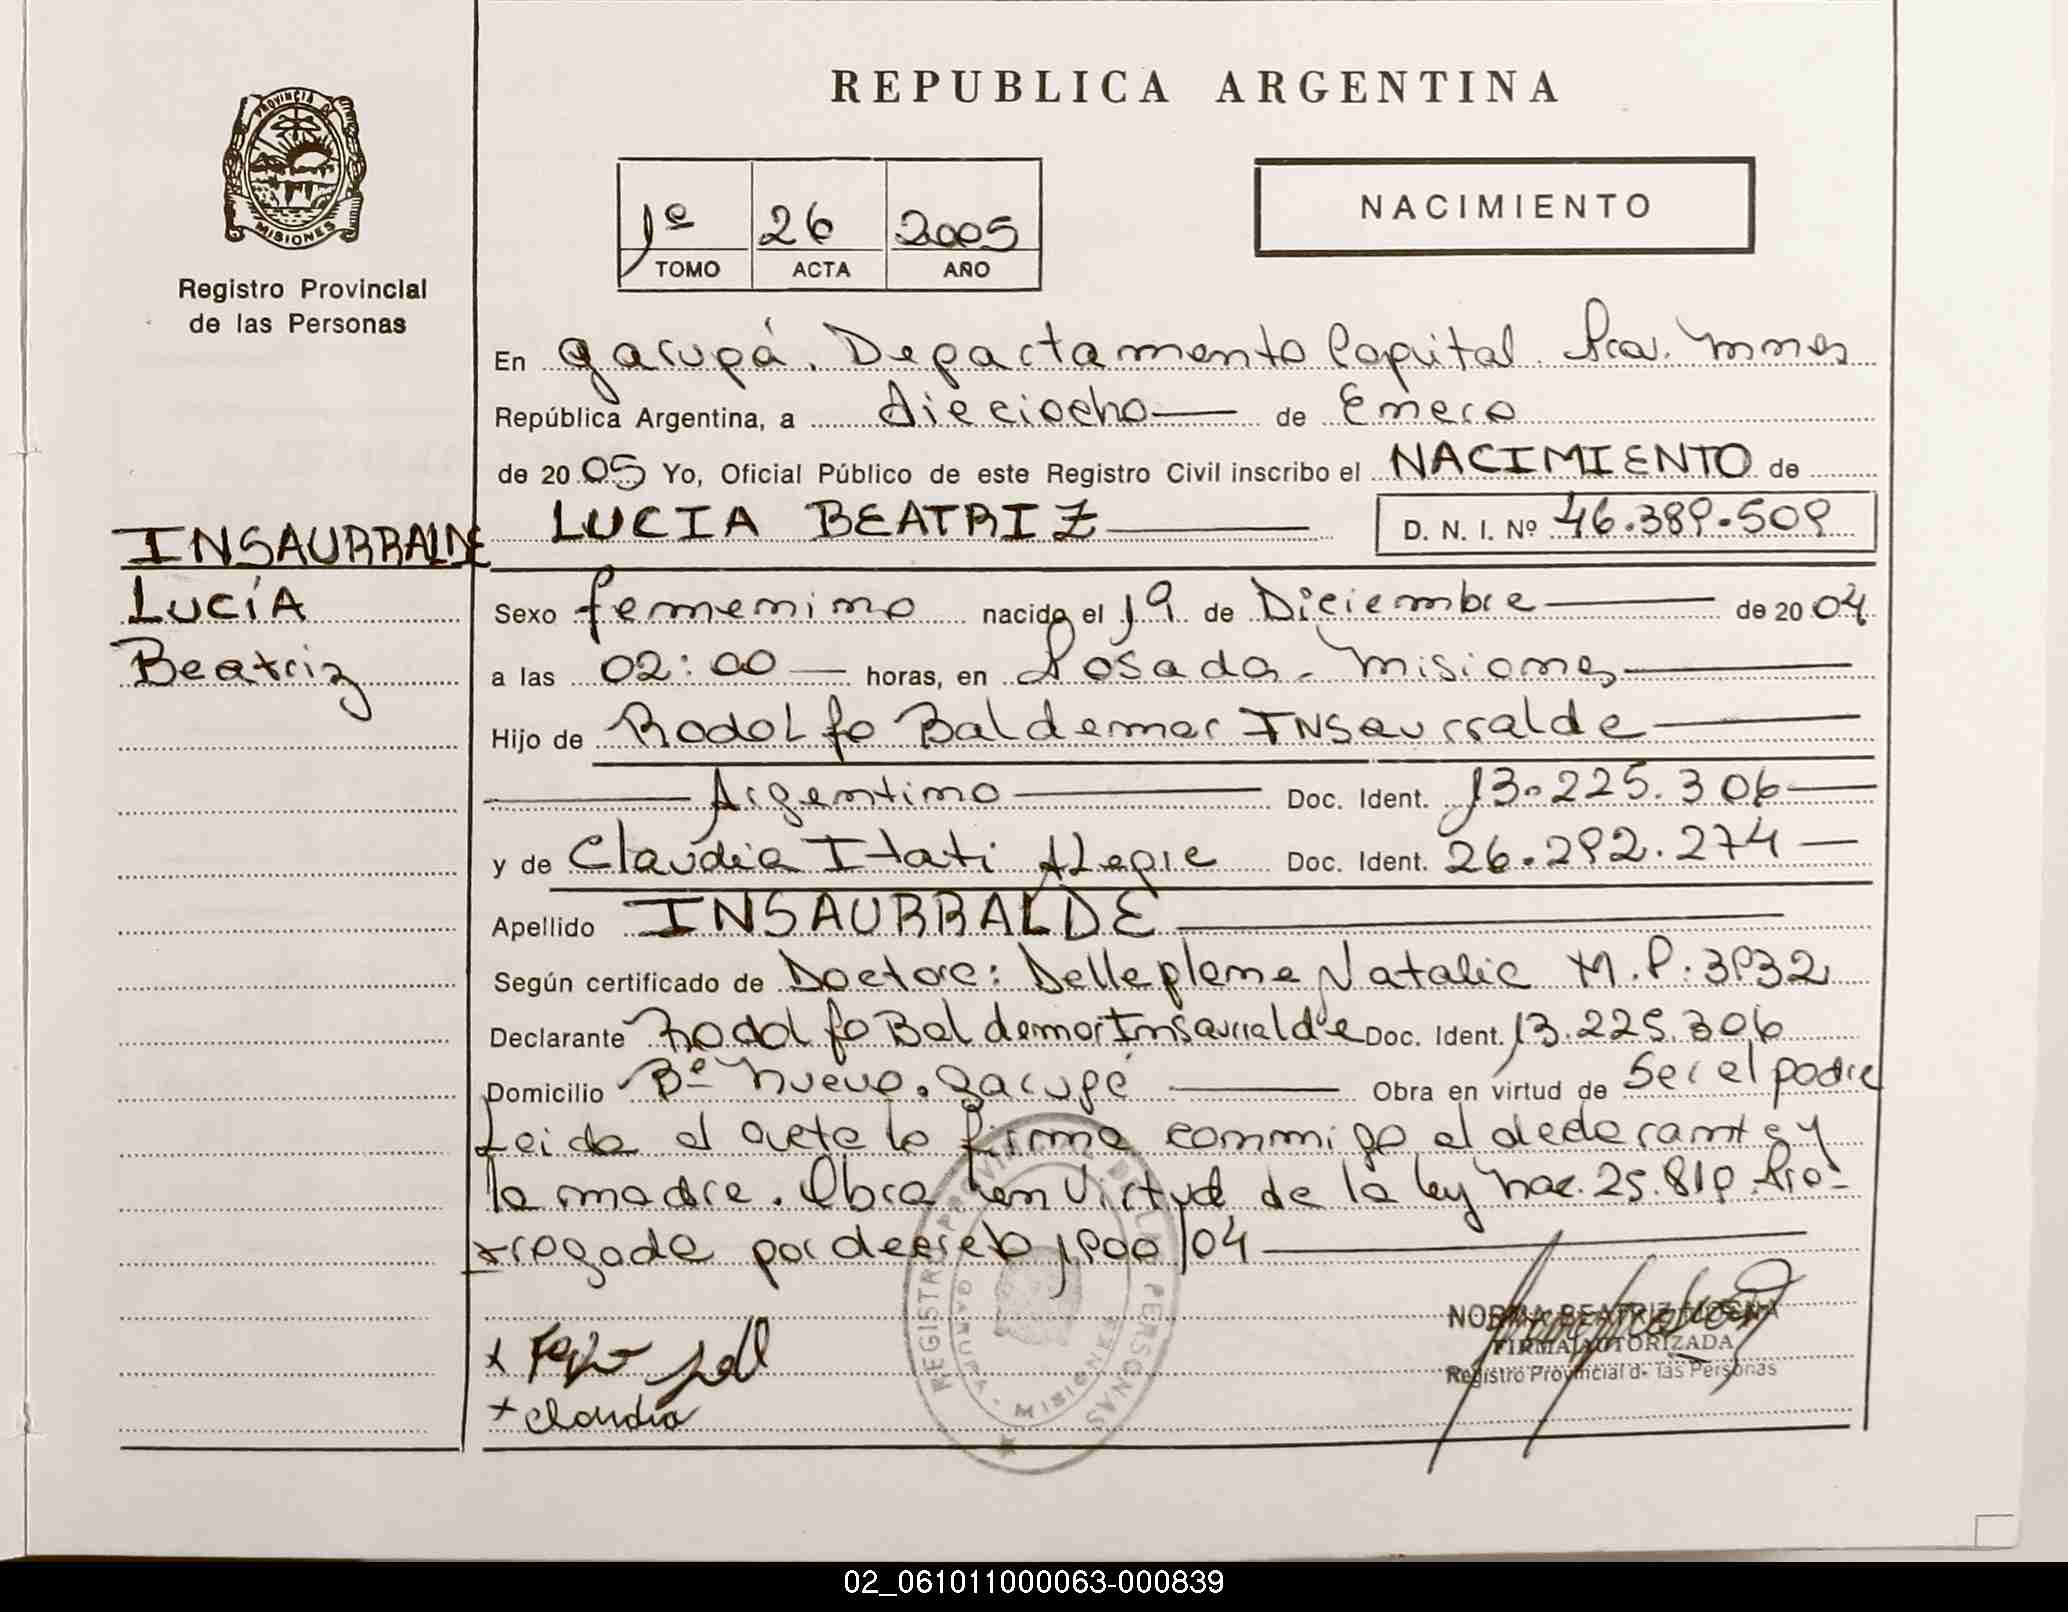 REPUBLICA ARGENTINA
PROVINCIA DE
MISIONES
Registro Provincial
de las Personas
1º 26 2005
TOMO ACTA AÑO
NACIMIENTO
En Garupá. Departamento Capital. Pcia. Mnes
República Argentina, a dieciocho de Enero
de 2005 Yo, Oficial Público de este Registro Civil inscribo el NACIMIENTO de
LUCIA BEATRIZ D. N. I. Nº 46.389.509
INSAURRALDE
Lucía
Beatriz
Sexo femenino nacido el 19 de Diciembre de 2004
a las 02:00 horas, en Posadas Misiones
Hijo de Rodolfo Baldemar INSaurralde
Argentino Doc. Ident. 13.225.306
y de Claudia Itati ALegre Doc. Ident. 26.292.274
Apellido INSAURRALDE
Según certificado de Doctora: Delleplane Natalia M.P: 3932
Declarante Rodolfo Baldemar Insaurralde Doc. Ident. 13.225.306
Domicilio Bº Nuevo. Garupá Obra en virtud de Ser el padre
Leida el acta lo firma conmigo el declarante y
la madre. Obra en Virtud de la ley Nac. 25.819 Pro-
rrogada por decreto 1900/04
REGISTRO PROVINCIAL DE LAS PERSONAS
GARUPA - MISIONES
NORMA BEATRIZ
FIRMA AUTORIZADA
Registro Provincial d- las Personas
x
x Claudia
02_061011000063-000839